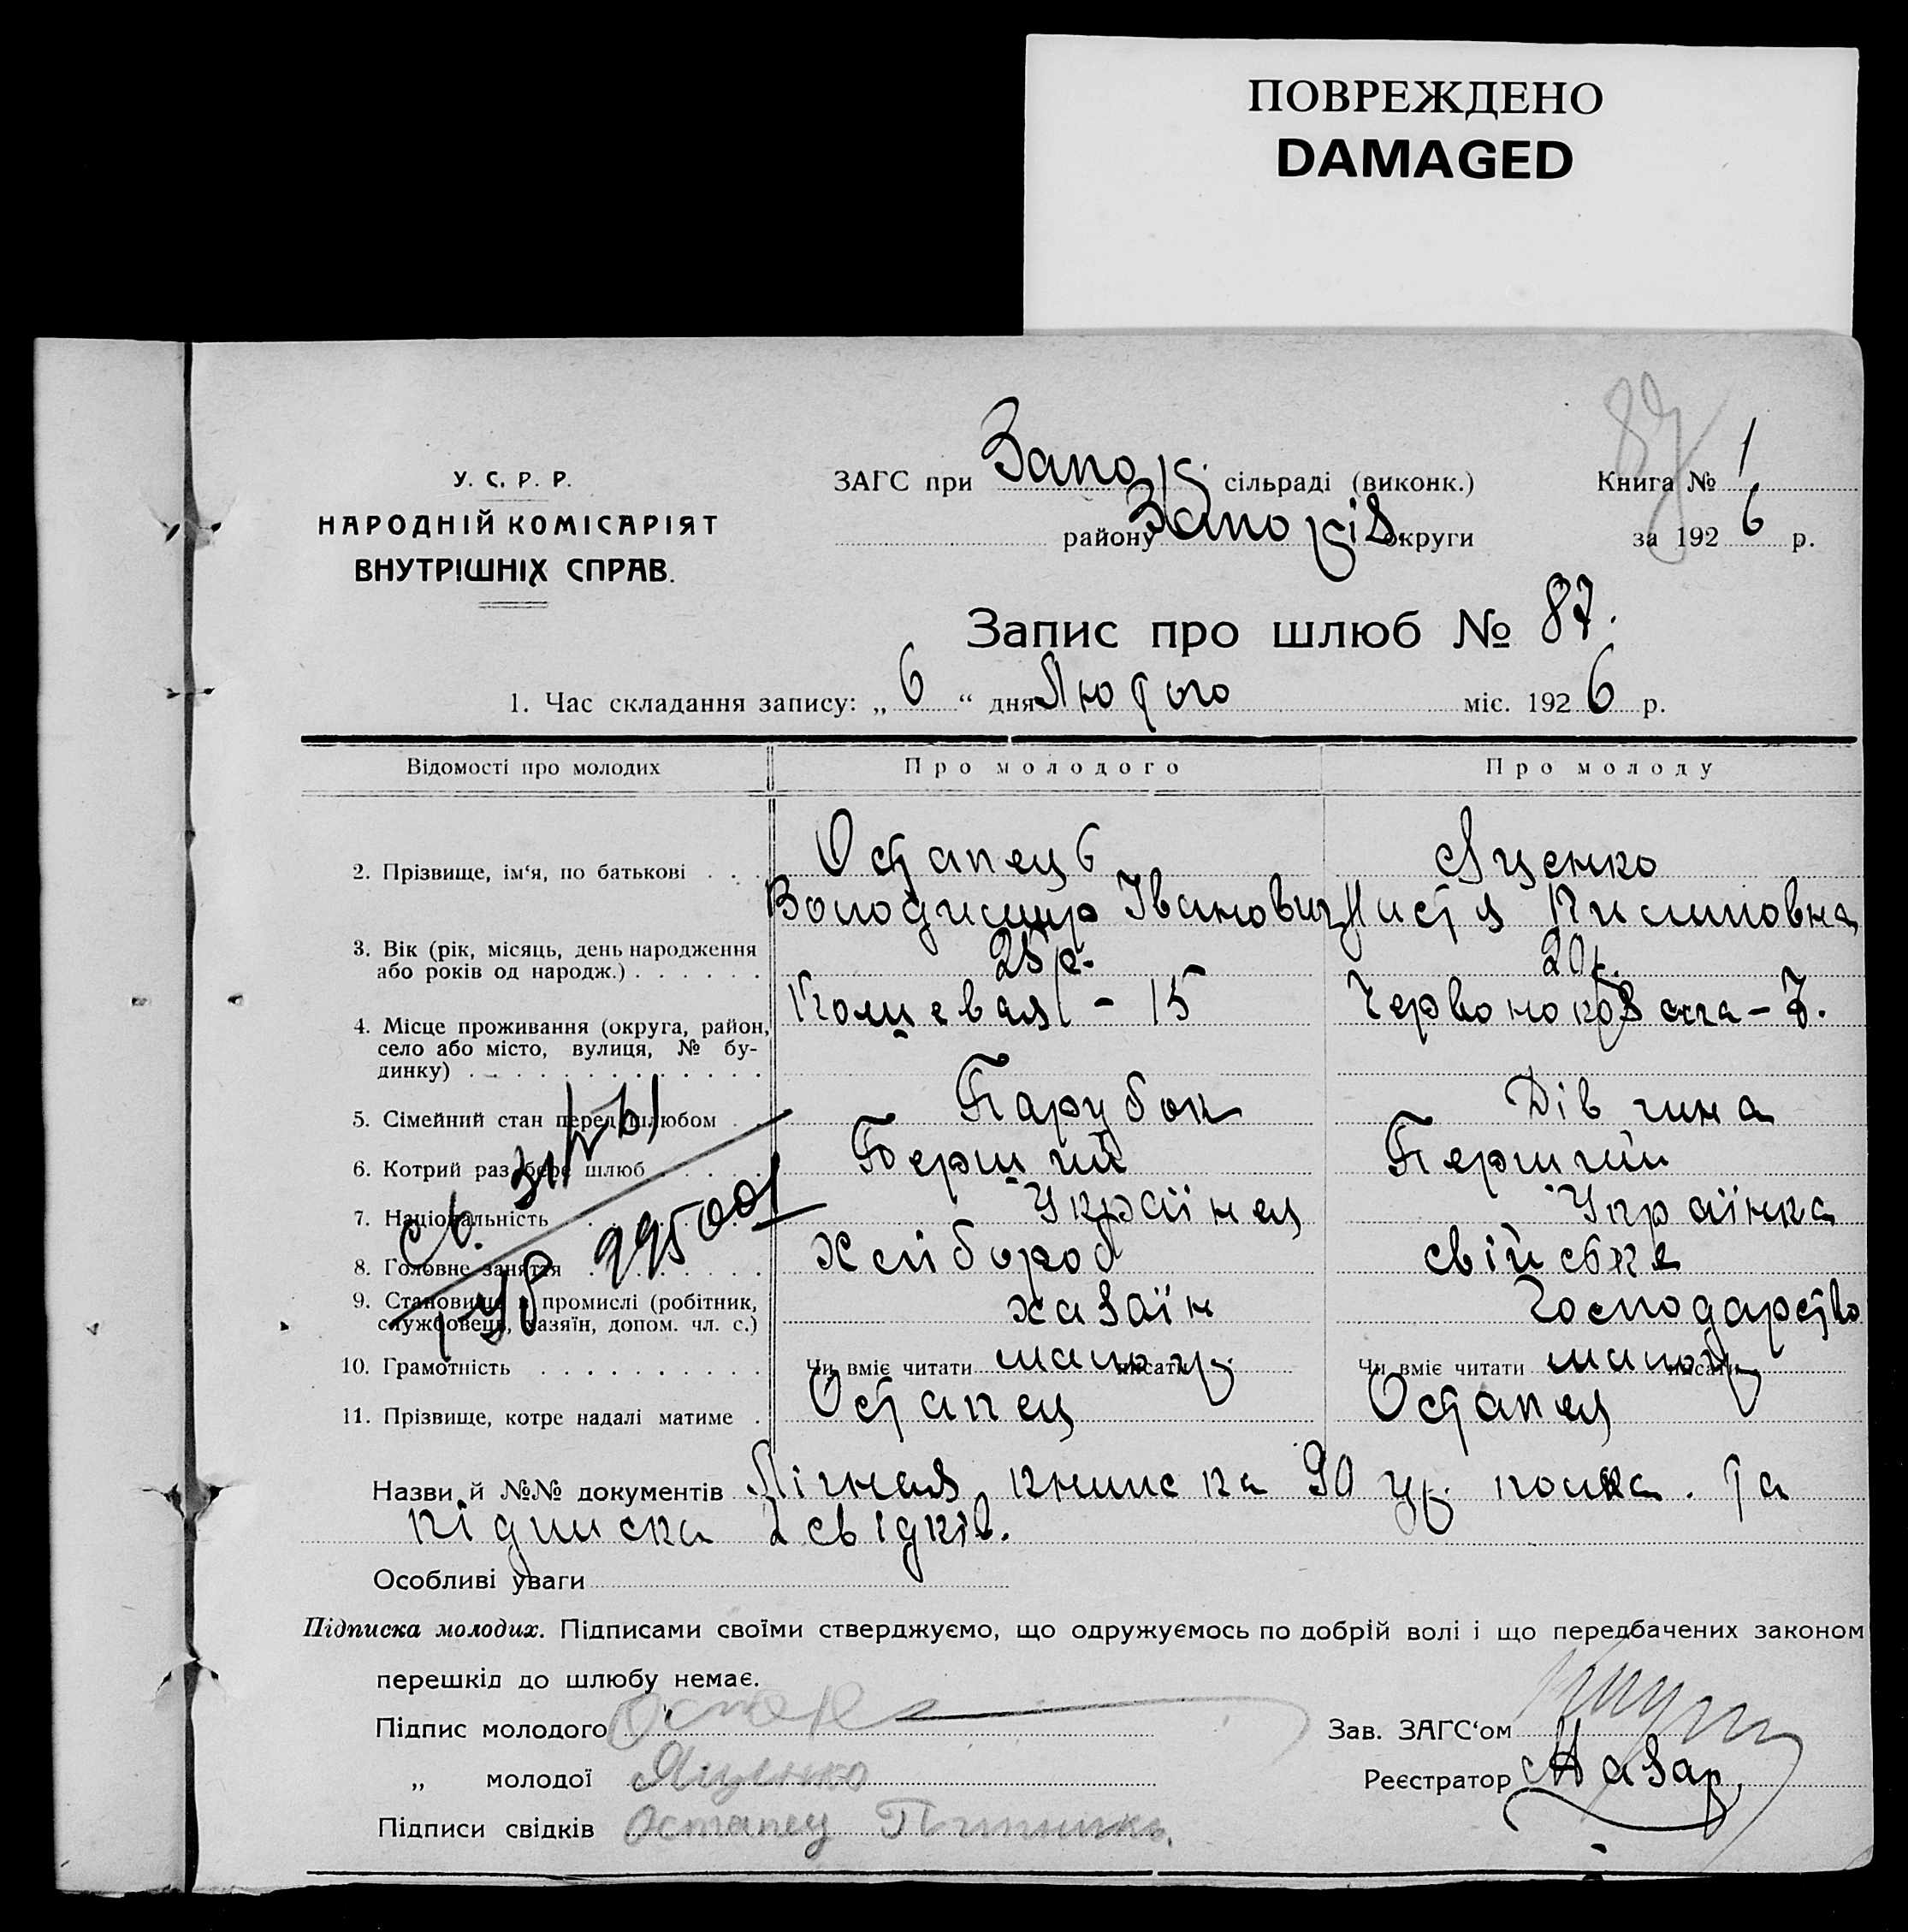 ПОВРЕЖДЕНО
DAMAGED
87
У. С. Р. Р.
НАРОДНІЙ КОМІСАРІЯТ
ВНУТРІШНІХ СПРАВ.
ЗАГС при Запор. сільраді (виконк.)
району Запоріз. округи
Книга № 1
за 1926 р.
Запис про шлюб № 87.
1. Час складання запису: „6“ дня Лютого міс. 1926 р.
Відомості про молодих
Про молодого
Про молоду
2. Прізвище, ім‘я, по батькові . . .
Остапець
Володимир Іванович
Яценко
Настя Пилиповна
3. Вік (рік, місяць, день народження
або років од народж.) . . . . . .
25 р.
20 р.
4. Місце проживання (округа, район,
село або місто, вулиця, № бу-
динку) . . . . . . . . . . . . .
Кольцевая - 15
Червонокозача - 7.
5. Сімейний стан перед шлюбом . .
Парубок
Дівчина
6. Котрий раз бере шлюб . . . . .
Перший
Перший
7. Національність . . . . . . . .
Українец
Українка
8. Головне заняття . . . . . . .
Хлибороб
свійське
9. Становище в промислі (робітник,
службовець, хазяїн, допом. чл. с.)
хазаїн
господарство
10. Грамотність . . . . . . . . . .
Чи вміє читати малогр. писати
Чи вміє читати малогр писати
11. Прізвище, котре надалі матиме .
Остапец
Остапец
Назви й №№ документів Лічная книжка 90 полка. та
підписка 2 свідків.
Особливі уваги
Підписка молодих. Підписами своїми стверджуємо, що одружуємось по добрій волі і що передбачених законом
перешкід до шлюбу немає.
Підпис молодого Остапец
„ молодої Яценко
Підписи свідків Остапец
Зав. ЗАГС‘ом
Реєстратор Назар